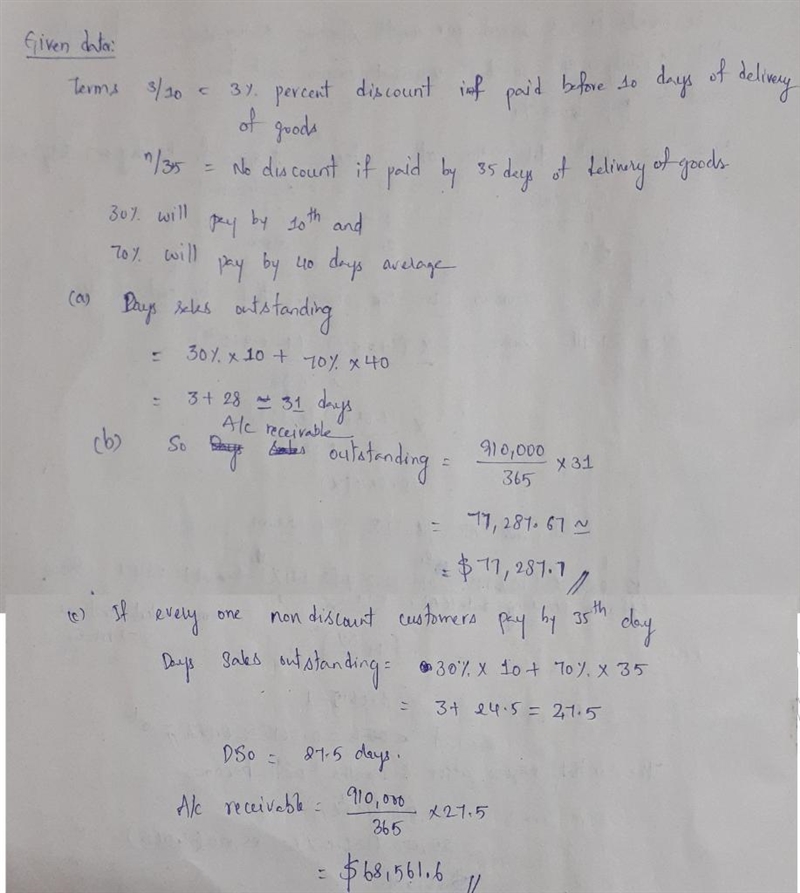 Given data:
Terms 3/10 = 3% percent discount if paid before 10 days of delivery
of goods
n/35 = No discount if paid by 35 days of delivery of goods
30% will pay by 10th and
70% will pay by 40 days average
(a) Days sales outstanding
= 30% x 10 + 70% x 40
= 3 + 28 ≃ 31 days
A/c receivable
(b) So Days Sales outstanding = 910,000/365 x 31
= 77,287.67 ≃
= $77,287.7 //
(c) If every one non discount customers pay by 35th day
Days Sales outstanding = 30% x 10 + 70% x 35
= 3 + 24.5 = 27.5
DSo = 27.5 days.
A/c receivable = 910,000/365 x 27.5
= $68,561.6 //